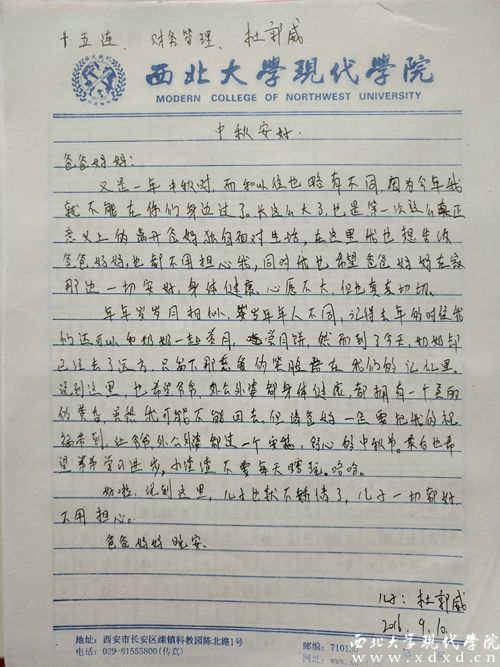 十五连、 财务管理、 杜郭威
西北大学現代学院
MODERN COLLEGE OF NORTHWEST UNIVERSITY
中秋安好.
爸爸妈妈:
又是一年中秋时,而和以往也略有不同,因为今年我
就不能在你们身边过了。长这么大了,也是第一次这么真正
意义上的离开爸妈独自面对生活,在这里我也想告诉
爸爸妈妈,也都不用担心我,同时我也希望爸爸妈妈在家
那边一切安好,身体健康,心愿不大,但也真真切切.
年年岁岁月相似,岁岁年年人不同,记得去年的时候我
们还可以和奶奶一起赏月,吃月饼,然而到了今天,奶奶却
已经去了远方,只留下那慈爱的笑脸在我们的记忆里.
说到这里,也希望爷爷,外公外婆都身体健康,都拥有一个美丽
的,虽然我可能不能回去,但请爸妈一定要把我的祝
福带到,让爷爷,外公外婆都过一个安稳,舒心的中秋节.也希
望弟弟学习进步,不要每天瞎玩.哈哈.
好啦,说到这里,儿子也就不矫情了,儿子一切都好
不用担心.
爸爸妈妈晚安.
儿子:杜郭威
2016.9.10.
地址:西安市长安区滦镇科教园陈北路1号
电话:029-81555800(传真)
邮编:7101
网址:www.
西北大学现代学院
www.xdxd.cn